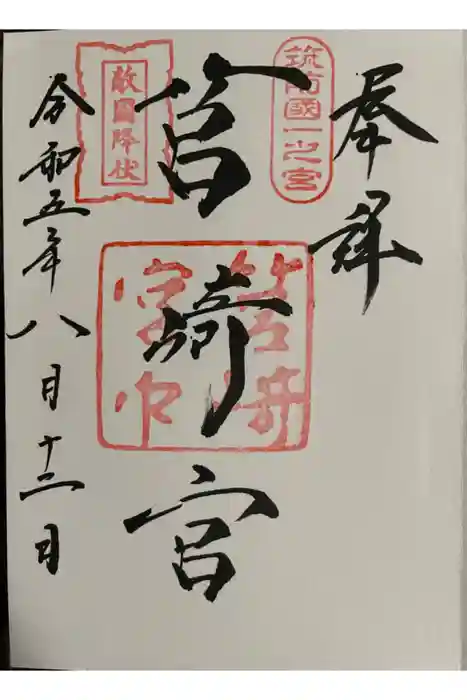 奉拝
筑前國一之宮
筥崎宮
筥埼
宮印
敵國降伏
令和五年八月十二日